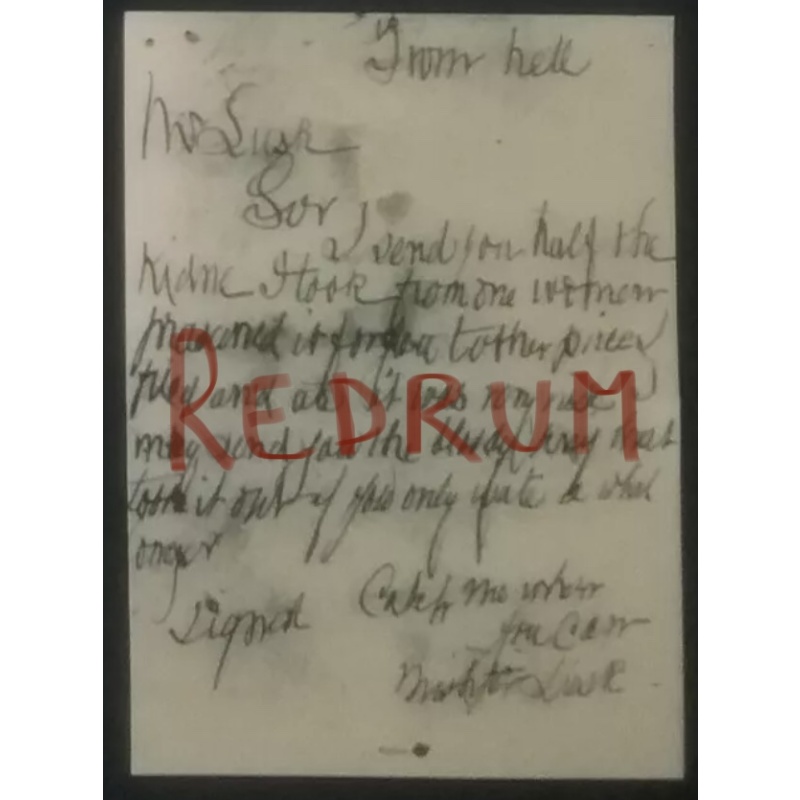 From hell
Mr Lusk
Sor
I send you half the
Kidne I took from one women
prasarved it for you tother piece I
fried and ate it was very nise I
may send you the bloody knif that
took it out if you only wate a whil
longer
REDRUM
Signed Catch me when
you can
Mishter Lusk